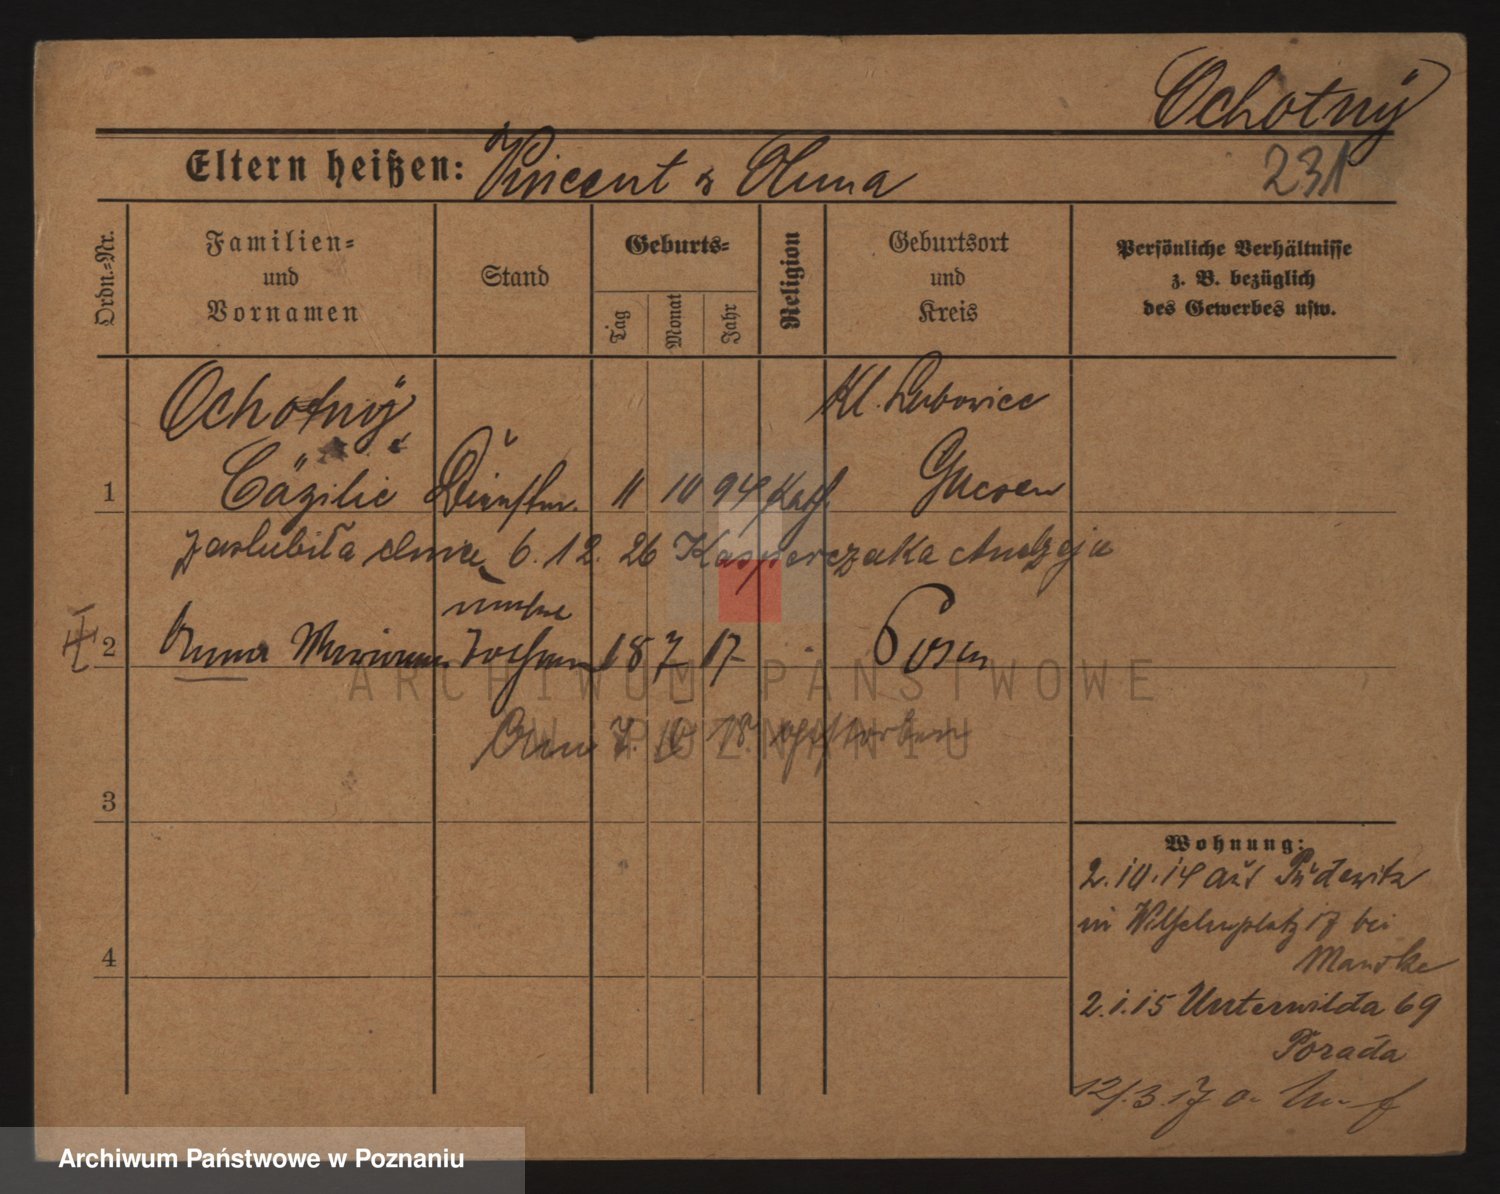 Ochotnÿ
231
Eltern heißen: Vincent & Anna
Ordn.=Nr.
Familien= und Vornamen
Stand
Geburts=
Tag
Monat
Jahr
Religion
Geburtsort und Kreis
Persönliche Verhältnisse
z. B. bezüglich
des Gewerbes usw.
Ochotnÿ
Kl. Lubowice
1 Cäzilie Dienstm. 11 10 94 Kath. Gnesen
zaslubiła dnia 6. 12. 26 Kasperczaka Andzeja
2 Anna Marianna Tochter 18 7 17 Posen
7. 10 18. gestorben
3
4
Wohnung:
2.10.14 aus Pudewitz
in Wilhelmplatz 17 bei
Manske
2.1.15 Unterwilda 69
Porada
12/.3.17
ARCHIWUM PAŃSTWOWE
W POZNANIU
Archiwum Państwowe w Poznaniu